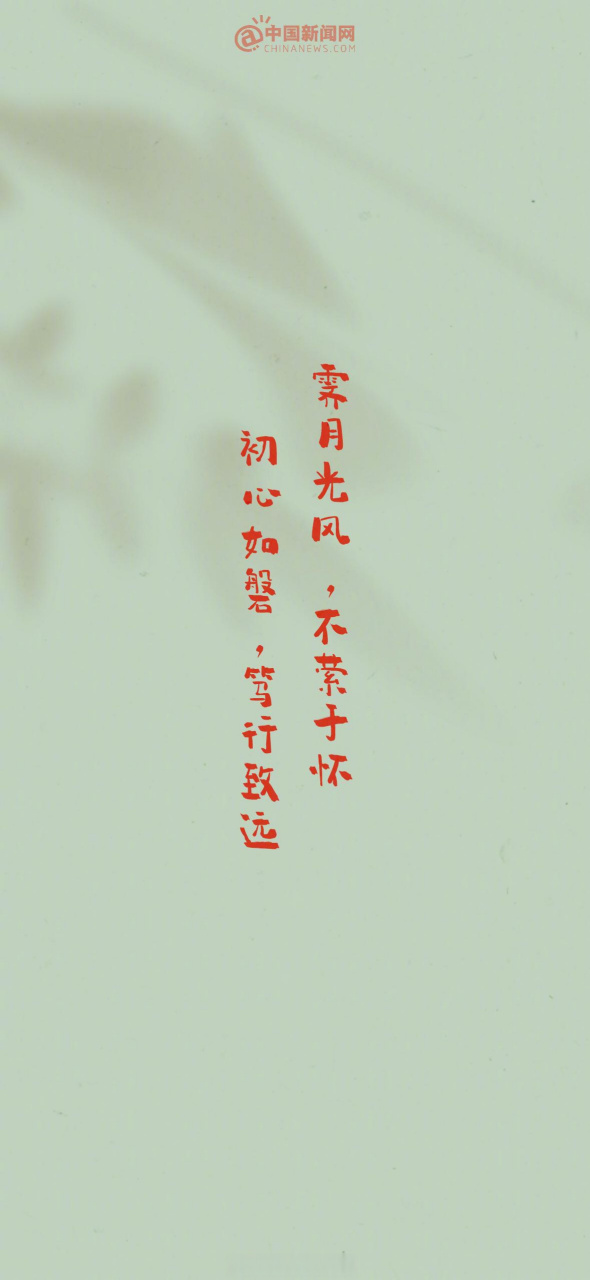 @中国新闻网
CHINANEWS.COM
霁月光风，不萦于怀
初心如磐，笃行致远